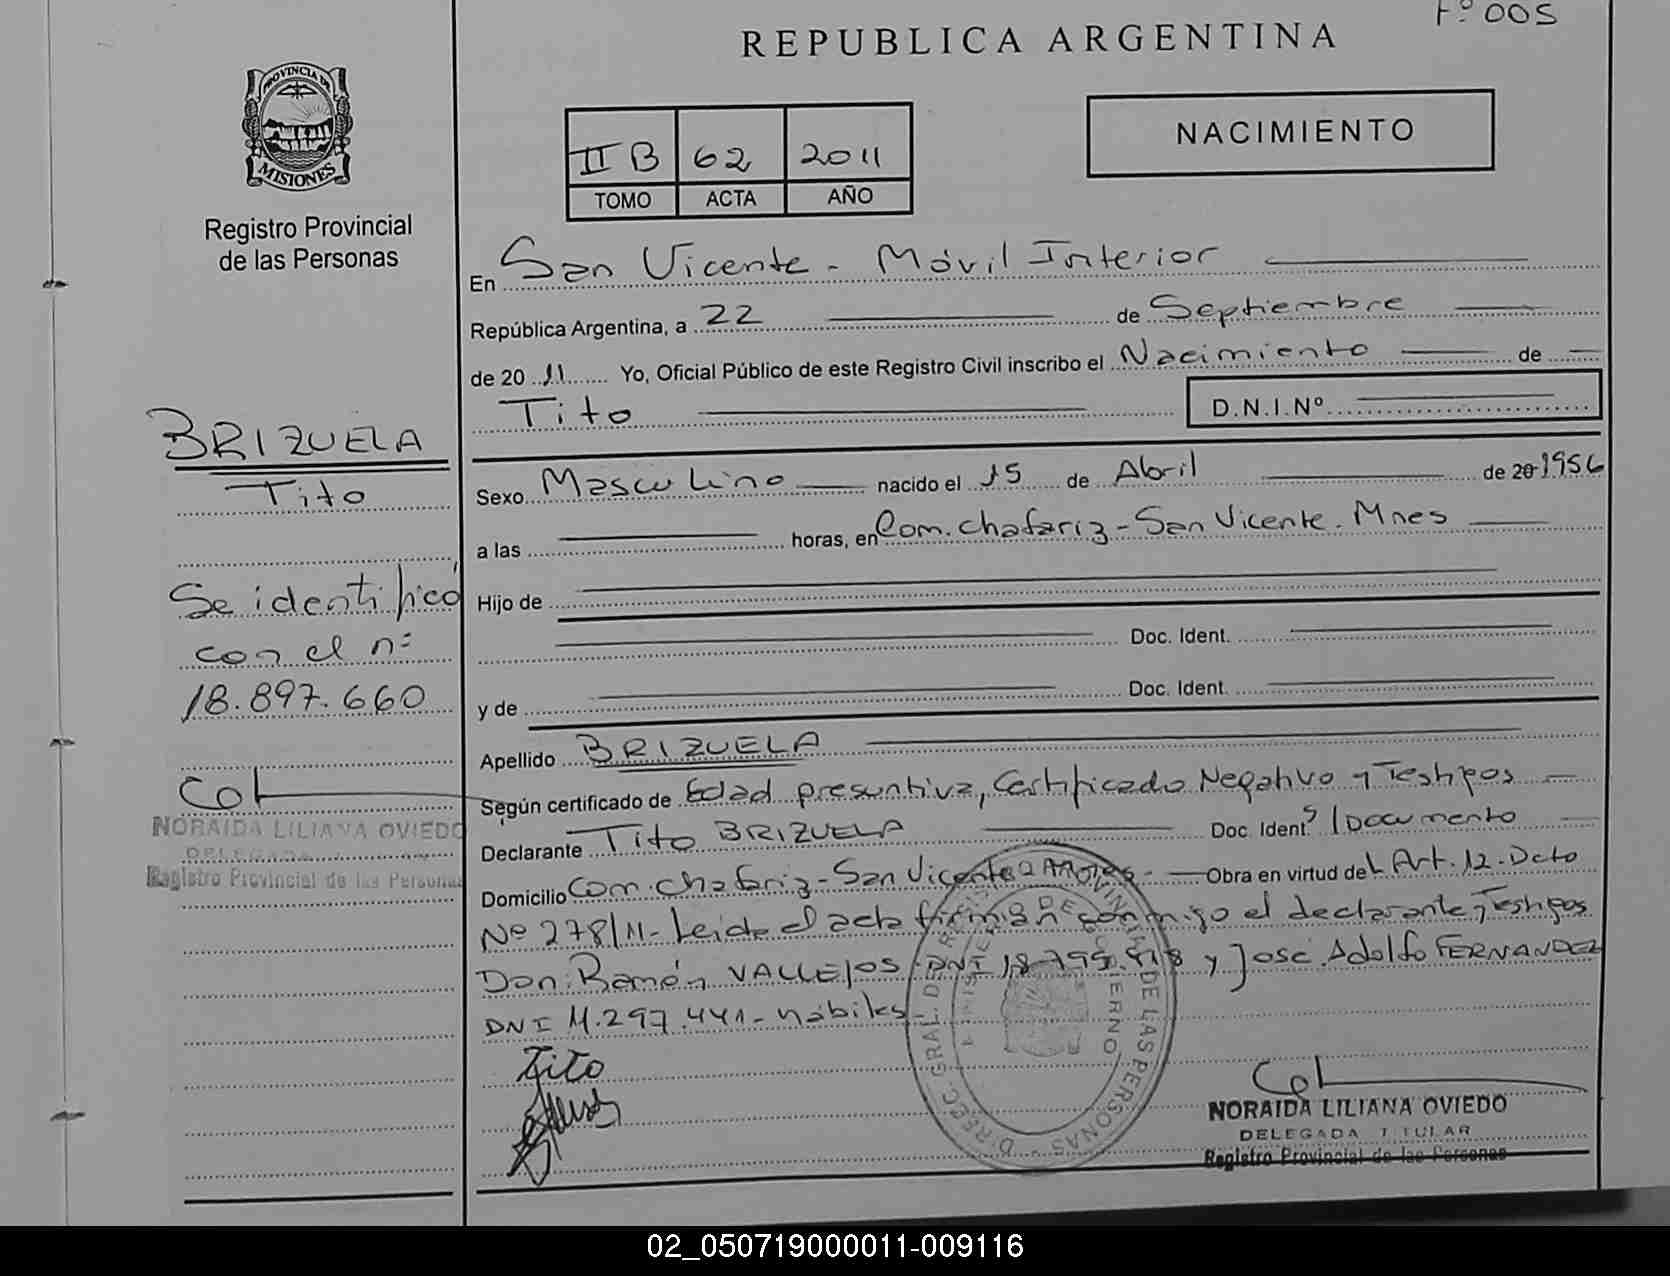 Fº 005
REPUBLICA ARGENTINA
PROVINCIA DE
MISIONES
Registro Provincial
de las Personas
II B 62 2011
TOMO ACTA AÑO
NACIMIENTO
En San Vicente - Móvil Interior
República Argentina, a 22 de Septiembre
de 20 11 Yo, Oficial Público de este Registro Civil inscribo el Nacimiento de
Tito D.N.I.Nº
BRIZUELA
Tito
Sexo Masculino nacido el 15 de Abril de 20 1956
a las horas, en Com. Chafariz - San Vicente. Mnes
Se identificó
con el nº
18.897.660
Hijo de
Doc. Ident.
y de Doc. Ident.
Apellido BRIZUELA
Según certificado de Edad presuntiva, Certificado Negativo y Testigos
NORAIDA LILIANA OVIEDO
DELEGADA
Registro Provincial de las Personas
Declarante Tito BRIZUELA Doc. Ident. S/Documento
Domicilio Com. Chafariz - San Vicente Obra en virtud del Art. 12. Dcto
Nº 278/11- Leida el acta firman conmigo el declarante, Testigos
Don: Ramón VALLEJOS DNI y José Adolfo FERNANDEZ
DNI M. 297.441 - hábiles -
Tito
DIREC. GRAL. DE PROVINCIAL DE LAS PERSONAS
NORAIDA LILIANA OVIEDO
DELEGADA TITULAR
Registro Provincial de las Personas
02_050719000011-009116